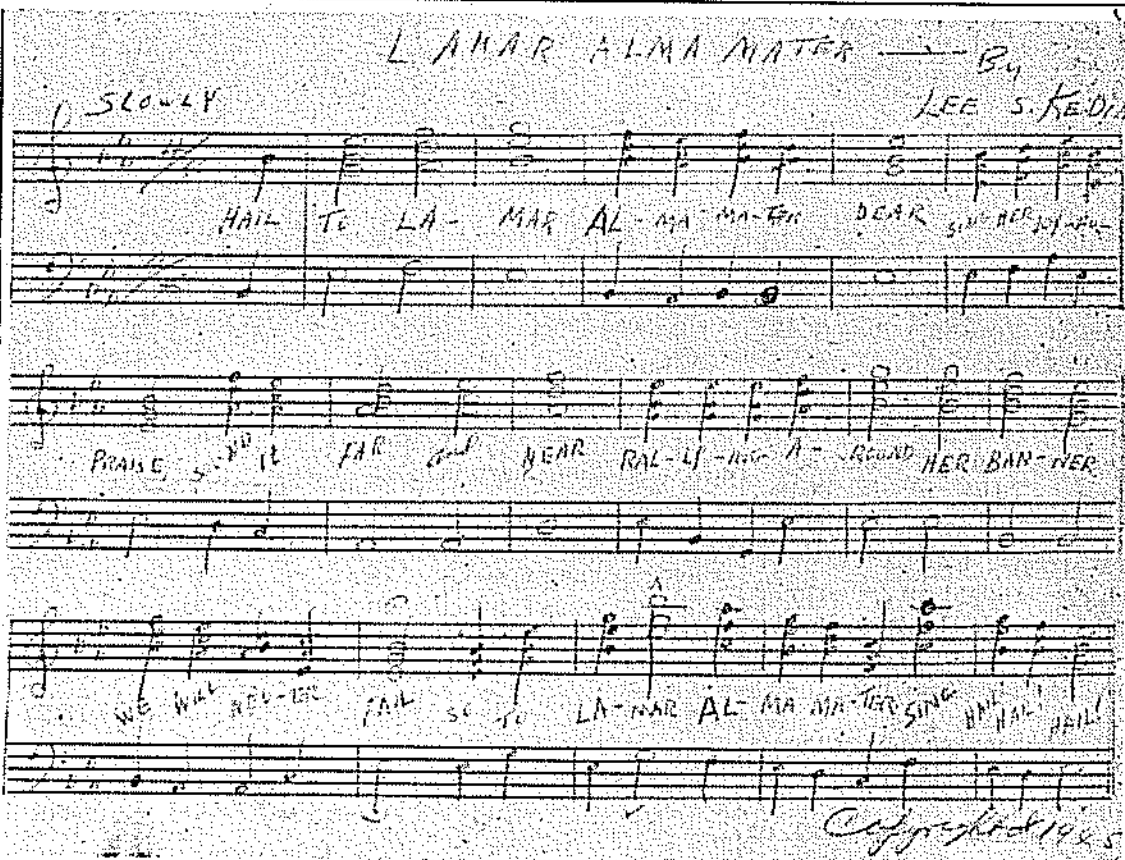 LAMAR ALMA MATER — By
SLOWLY
LEE S. KEDIA
HAIL TO LA- MAR AL-MA MA-TER DEAR SING HER
PRAISE, SEND it FAR and NEAR RAL-LY-ING A-ROUND HER BAN-NER
WE WILL NEV-ER FAIL SO TO LA-MAR AL-MA MA-TER SING HAIL! HAIL! HAIL!
Copyrighted